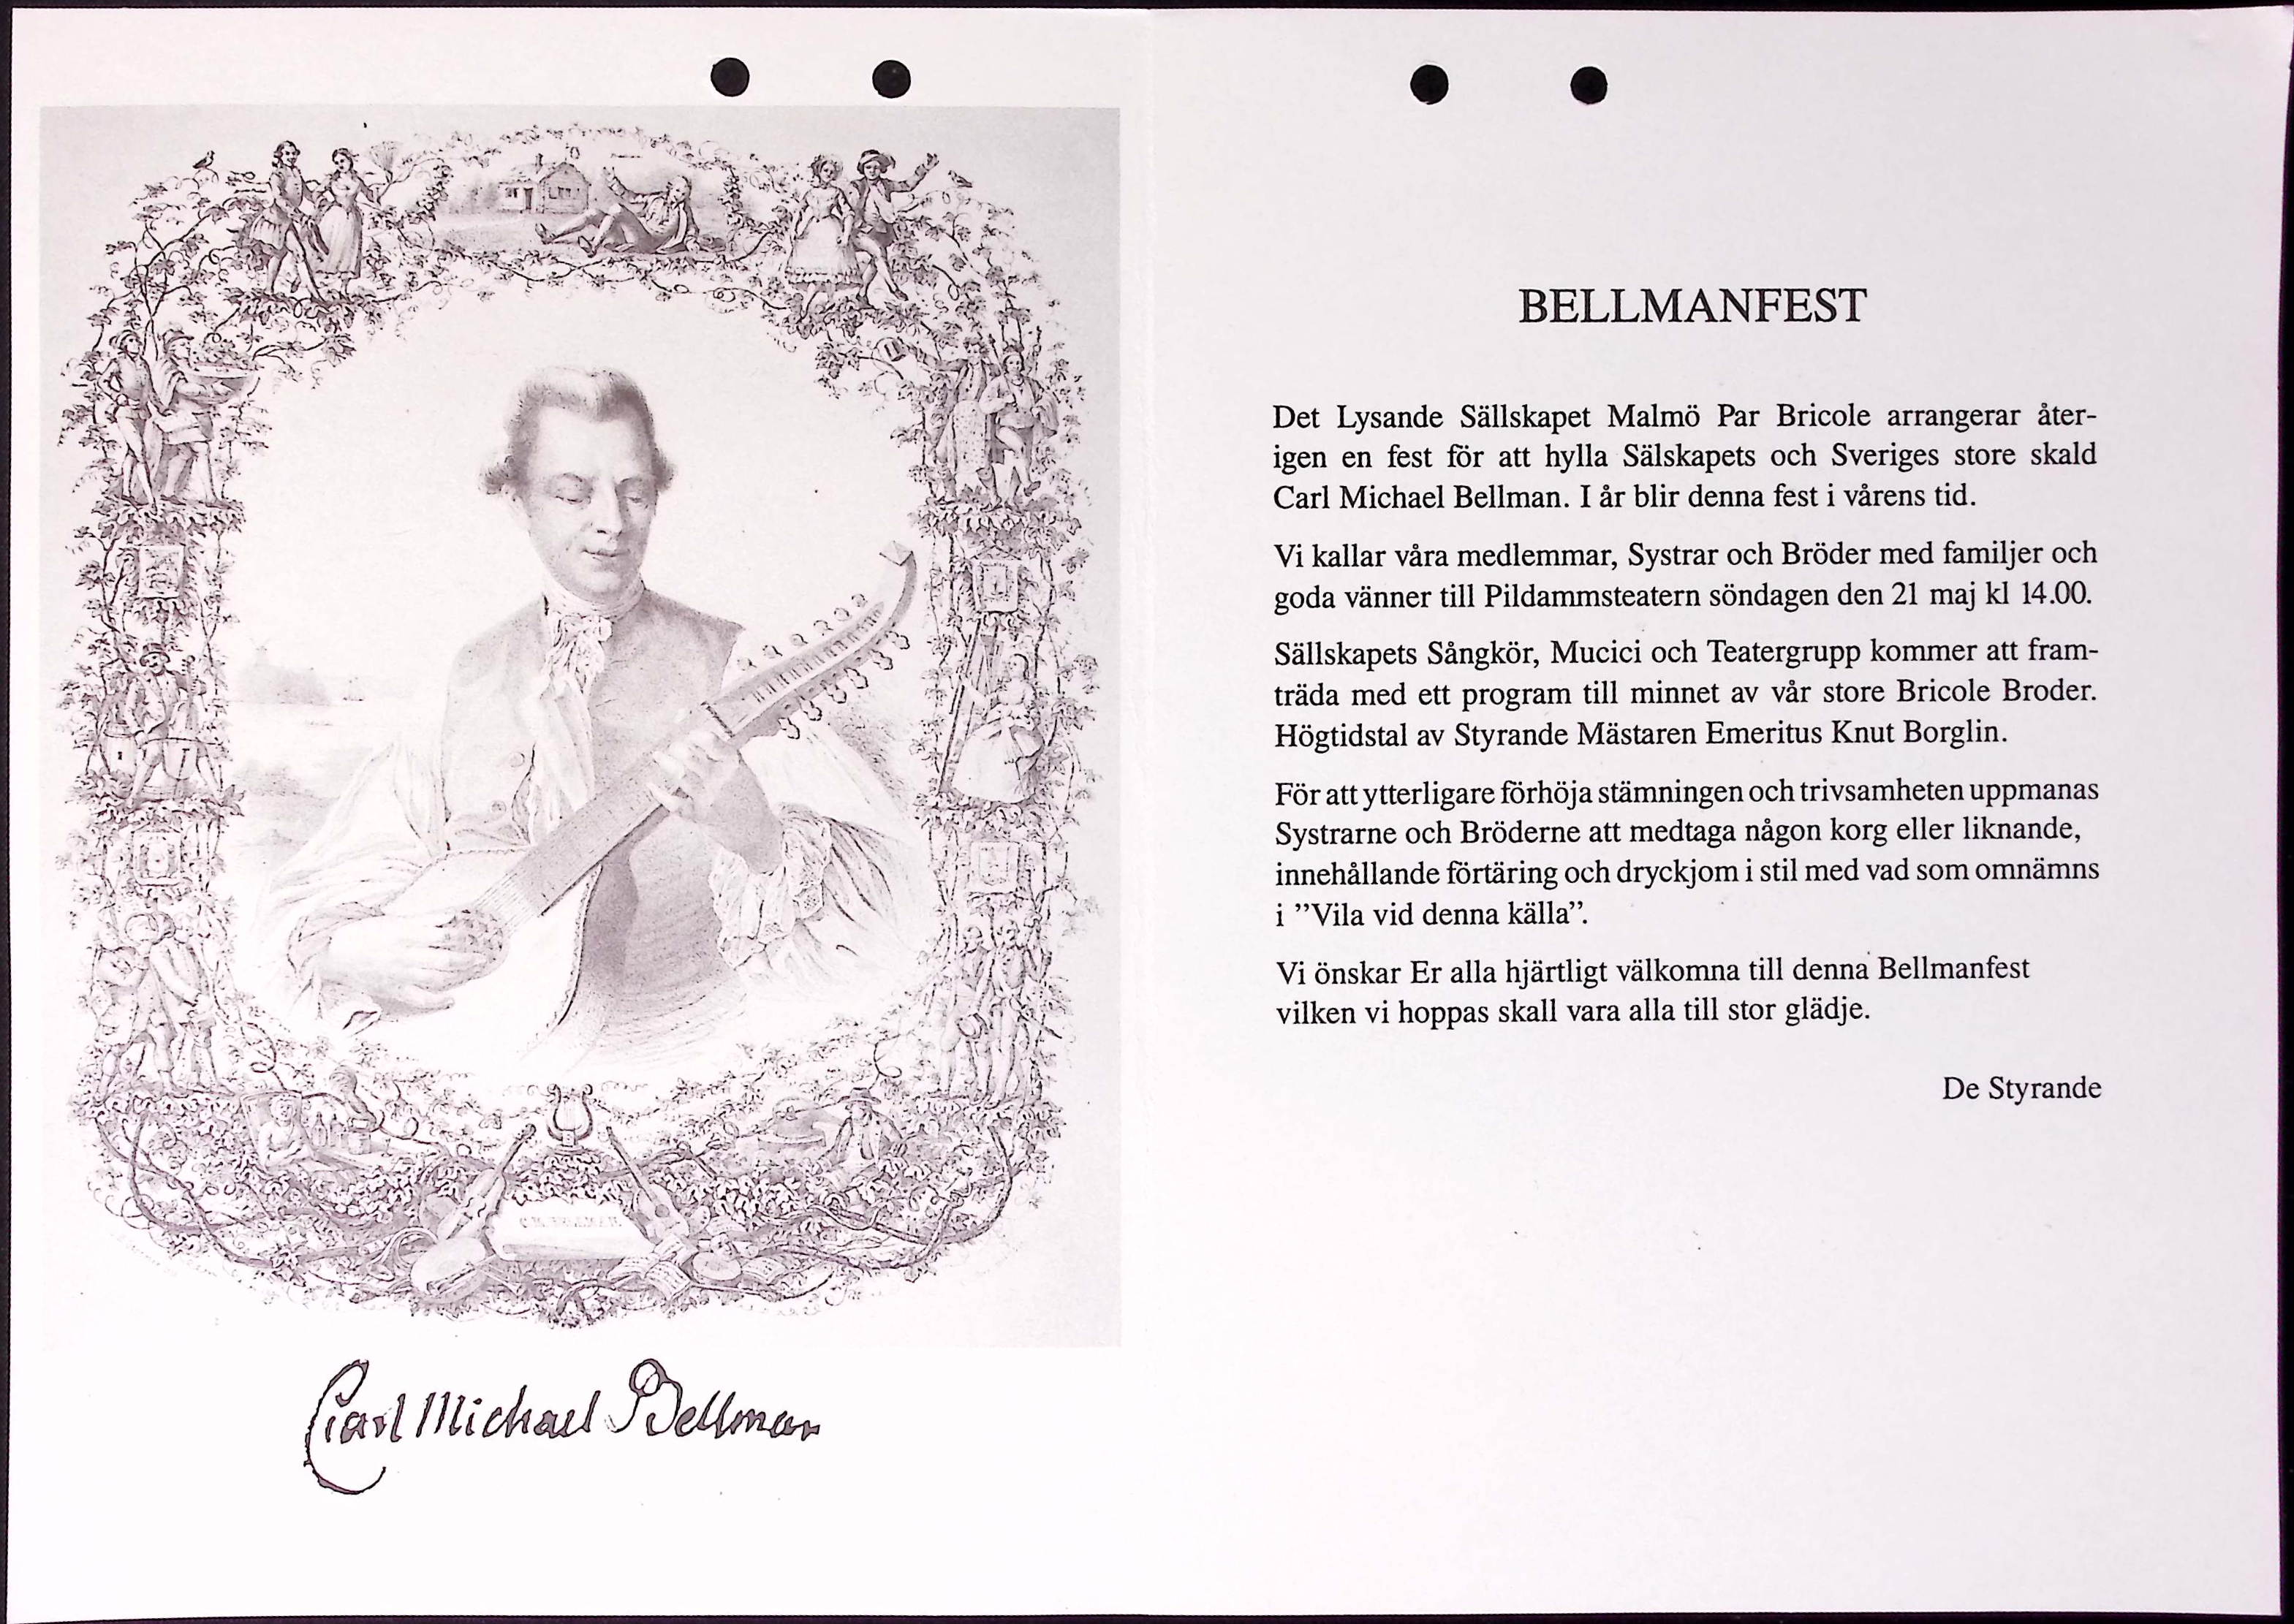 C. M. BELLMAN.
Carl Michael Bellman
BELLMANFEST
Det Lysande Sällskapet Malmö Par Bricole arrangerar åter-
igen en fest för att hylla Sälskapets och Sveriges store skald
Carl Michael Bellman. I år blir denna fest i vårens tid.
Vi kallar våra medlemmar, Systrar och Bröder med familjer och
goda vänner till Pildammsteatern söndagen den 21 maj kl 14.00.
Sällskapets Sångkör, Mucici och Teatergrupp kommer att fram-
träda med ett program till minnet av vår store Bricole Broder.
Högtidstal av Styrande Mästaren Emeritus Knut Borglin.
För att ytterligare förhöja stämningen och trivsamheten uppmanas
Systrarne och Bröderne att medtaga någon korg eller liknande,
innehållande förtäring och dryckjom i stil med vad som omnämns
i ”Vila vid denna källa”.
Vi önskar Er alla hjärtligt välkomna till denna Bellmanfest
vilken vi hoppas skall vara alla till stor glädje.
De Styrande